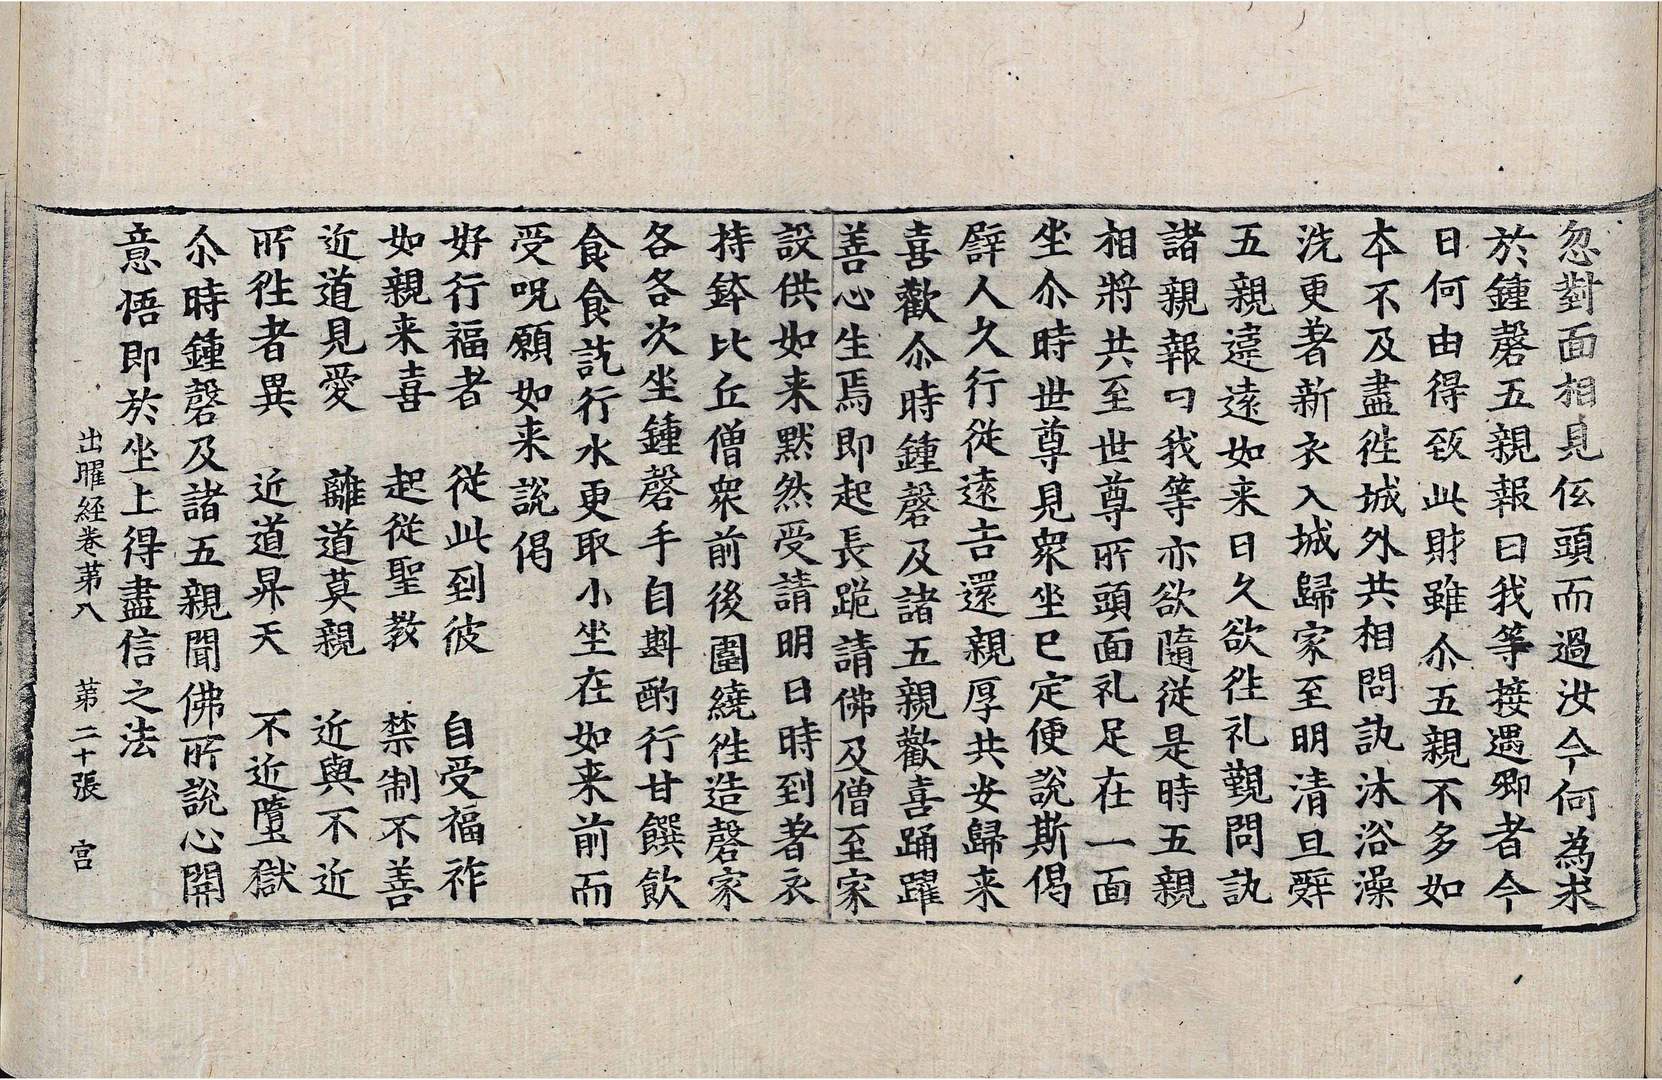 忽對面相見伭頭而過汝今何為求
於鍾磬五親報曰我等接遇卿者今
日何由得致此財雖尒五親不多如
本不及盡徃城外共相問訊沐浴澡
洗更著新衣入城歸家至明清旦辤
五親違遠如来日久欲徃礼覲問訊
諸親報曰我等亦欲隨從是時五親
相將共至世尊所頭面礼足在一面
坐尒時世尊見衆坐已定便說斯偈
辟人久行從遠吉還親厚共安歸来
喜歡尒時鍾磬及諸五親歡喜踊躍
善心生焉即起長跪請佛及僧至家
設供如来默然受請明日時到著衣
持鉢比丘僧衆前後圍繞徃造磬家
各各次坐鍾磬手自斟酌行甘饌飲
食食訖行水更取小坐在如来前而
受呪願如来說偈
好行福者　從此到彼　自受福祚
如親来喜　起從聖教　禁制不善
近道見愛　離道莫親　近與不近
所徃者異　近道昇天　不近墮獄
尒時鍾磬及諸五親聞佛所說心開
意悟即於坐上得盡信之法
出曜経卷苐八　苐二十張　宫